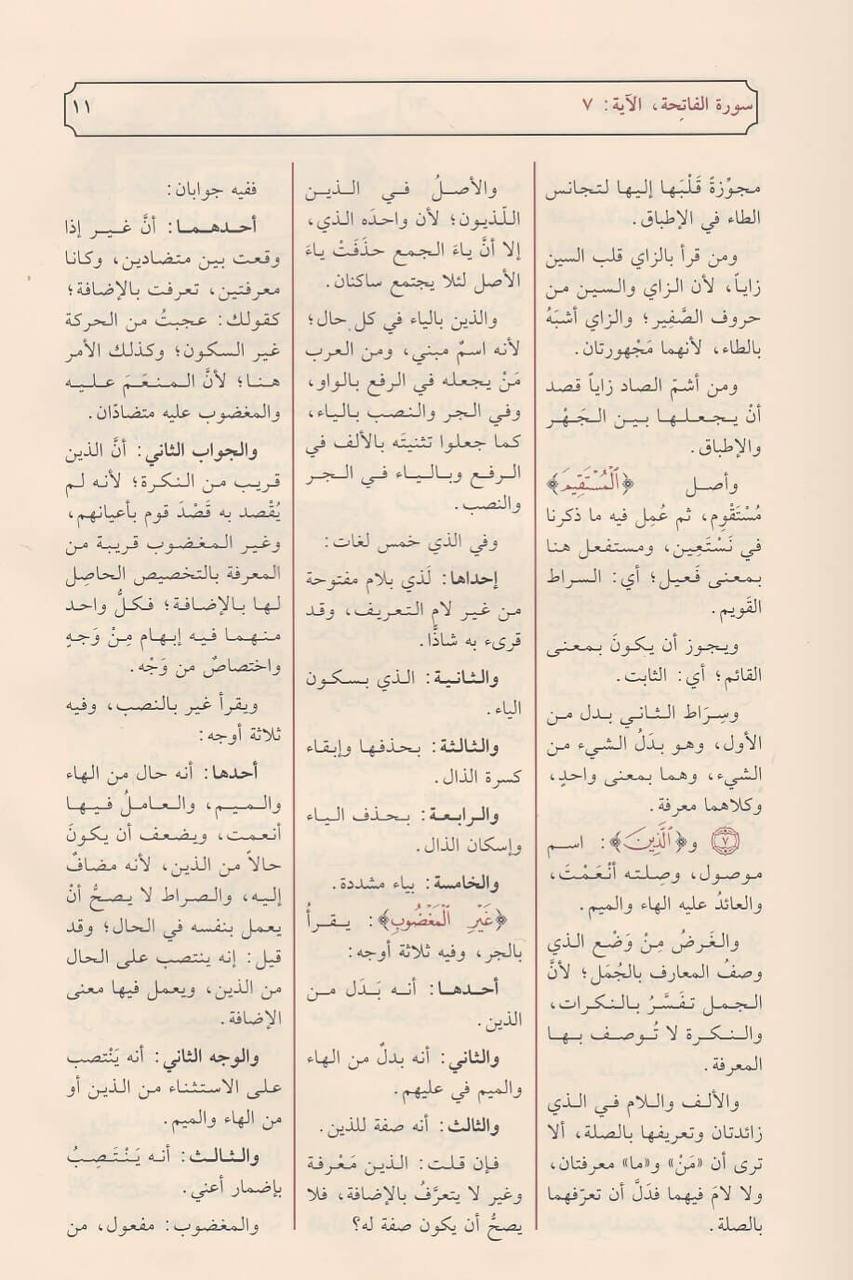 سورة الفاتِحة، الآية: ٧
١١
مجوِّزةً قَلْبَها إليها لتجانس
الطاء في الإطباق.
ومن قرأ بالزاي قلب السين
زاياً، لأن الزاي والسين من
حروف الصَّفِير؛ والزاي أشبَهُ
بالطاء، لأنهما مَجْهورتان.
ومن أشمّ الصاد زاياً قصد
أنْ يـجـعـلـهـا بـيـن الـجَـهْـر
والإطباق.
وأصل ﴿ٱلْمُسْتَقِيمَ﴾
مُسْتَقْوِم، ثم عُمِل فيه ما ذكرنا
في نَسْتَعِين، ومستفعل هنا
بمعنى فَعيل؛ أي: السراط
القَويم.
ويجوز أن يكونَ بمعنى
القائم؛ أي: الثابت.
وسِرَاط الثاني بدل من
الأول، وهو بدَلُ الشيء من
الشيء، وهما بمعنى واحدٍ،
وكلاهما معرفة.
٧ و﴿ٱلَّذِينَ﴾: اسم
موصول، وصِلته أنْعَمْتَ،
والعائدُ عليه الهاء والميم.
والغَرضُ مِنْ وَضْع الذي
وصفُ المعارف بالجُمَل؛ لأنَّ
الجمل تفَسَّرُ بالنكرات،
والنكرة لا تُوصف بها
المعرفة.
والألف واللام في الذي
زائدتان وتعريفها بالصلة، ألا
ترى أن «مَنْ» و«ما» معرفتان،
ولا لامَ فيهما فدَلَّ أن تعرّفهما
بالصلة.
والأصلُ في الذين
اللّذيون؛ لأن واحدَه الذي،
إلا أنَّ ياءَ الجمع حذَفَتْ ياءَ
الأصل لئلا يجتمع ساكنان.
والذين بالياء في كل حال؛
لأنه اسمٌ مبني، ومن العرب
مَنْ يجعله في الرفع بالواو،
وفي الجر والنصب بالياء،
كما جعلوا تثنيتَه بالألف في
الرفع وبالياء في الجر
والنصب.
وفي الذي خمس لغات:
إحداها: لَذي بلام مفتوحة
من غير لام التعريف، وقد
قرىء به شاذًّا.
والثانية: الذي بسكون
الياء.
والثالثة: بحذفها وإبقاء
كسرة الذال.
والرابعة: بحذف الياء
وإسكان الذال.
والخامسة: بياء مشددة.
﴿غَيْرِ ٱلْمَغْضُوبِ﴾: يقرأُ
بالجر، وفيه ثلاثة أوجه:
أحدها: أنه بَدَل من
الذين.
والثاني: أنه بدلٌ من الهاء
والميم في عليهم.
والثالث: أنه صفة للذين.
فإن قلت: الذين مَعْرفة
وغير لا يتعرَّفُ بالإضافة، فلا
يصحُّ أن يكون صفة له؟
ففيه جوابان:
أحدهما: أنَّ غير إذا
وقعت بين متضادين، وكانا
معرفتين، تعرفت بالإضافة؛
كقولك: عجبتُ من الحركة
غير السكون؛ وكذلك الأمر
هنا؛ لأنَّ المنعَمَ عليه
والمغضوب عليه متضادّان.
والجواب الثاني: أنَّ الذين
قريب من النكرة؛ لأنه لم
يُقْصد به قَصْدَ قوم بأعيانهم،
وغير المغضوب قريبة من
المعرفة بالتخصيص الحاصِل
لها بالإضافة؛ فكلُّ واحد
منهما فيه إبهام مِنْ وَجهٍ
واختصاصٌ من وَجْه.
ويقرأ غير بالنصب، وفيه
ثلاثة أوجه:
أحدها: أنه حال من الهاء
والميم، والعاملُ فيها
أنعمت، ويضعف أن يكونَ
حالاً من الذين، لأنه مضافٌ
إليه، والصراط لا يصحُّ أنْ
يعمل بنفسه في الحال؛ وقد
قيل: إنه ينتصب على الحال
من الذين، ويعمل فيها معنى
الإضافة.
والوجه الثاني: أنه يَنْتصب
على الاستثناء من الذين أو
من الهاء والميم.
والثالث: أنه يَنْتَصِبُ
بإضمار أعني.
والمغضوب: مفعول، من